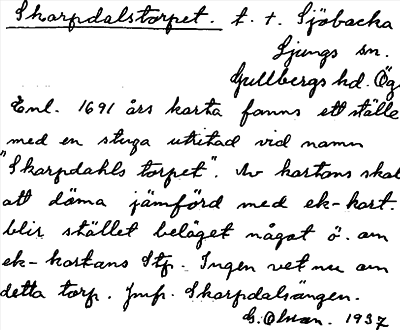 Skarpdalstorpet. t. t. Sjöbacka
Ljungs sn.
Gullbergs hd. Ög
Enl. 1691 års karta fanns ett ställe
med en stuga utritad vid namn
"Skarpdahls torpet". Av kartans skal
att döma jämförd med ek-kart.
blir stället beläget något ö. om
ek-kartans Stp. Ingen vet nu om
detta torp. Jmf. Skarpdalsängen.
G. Olsson. 1937